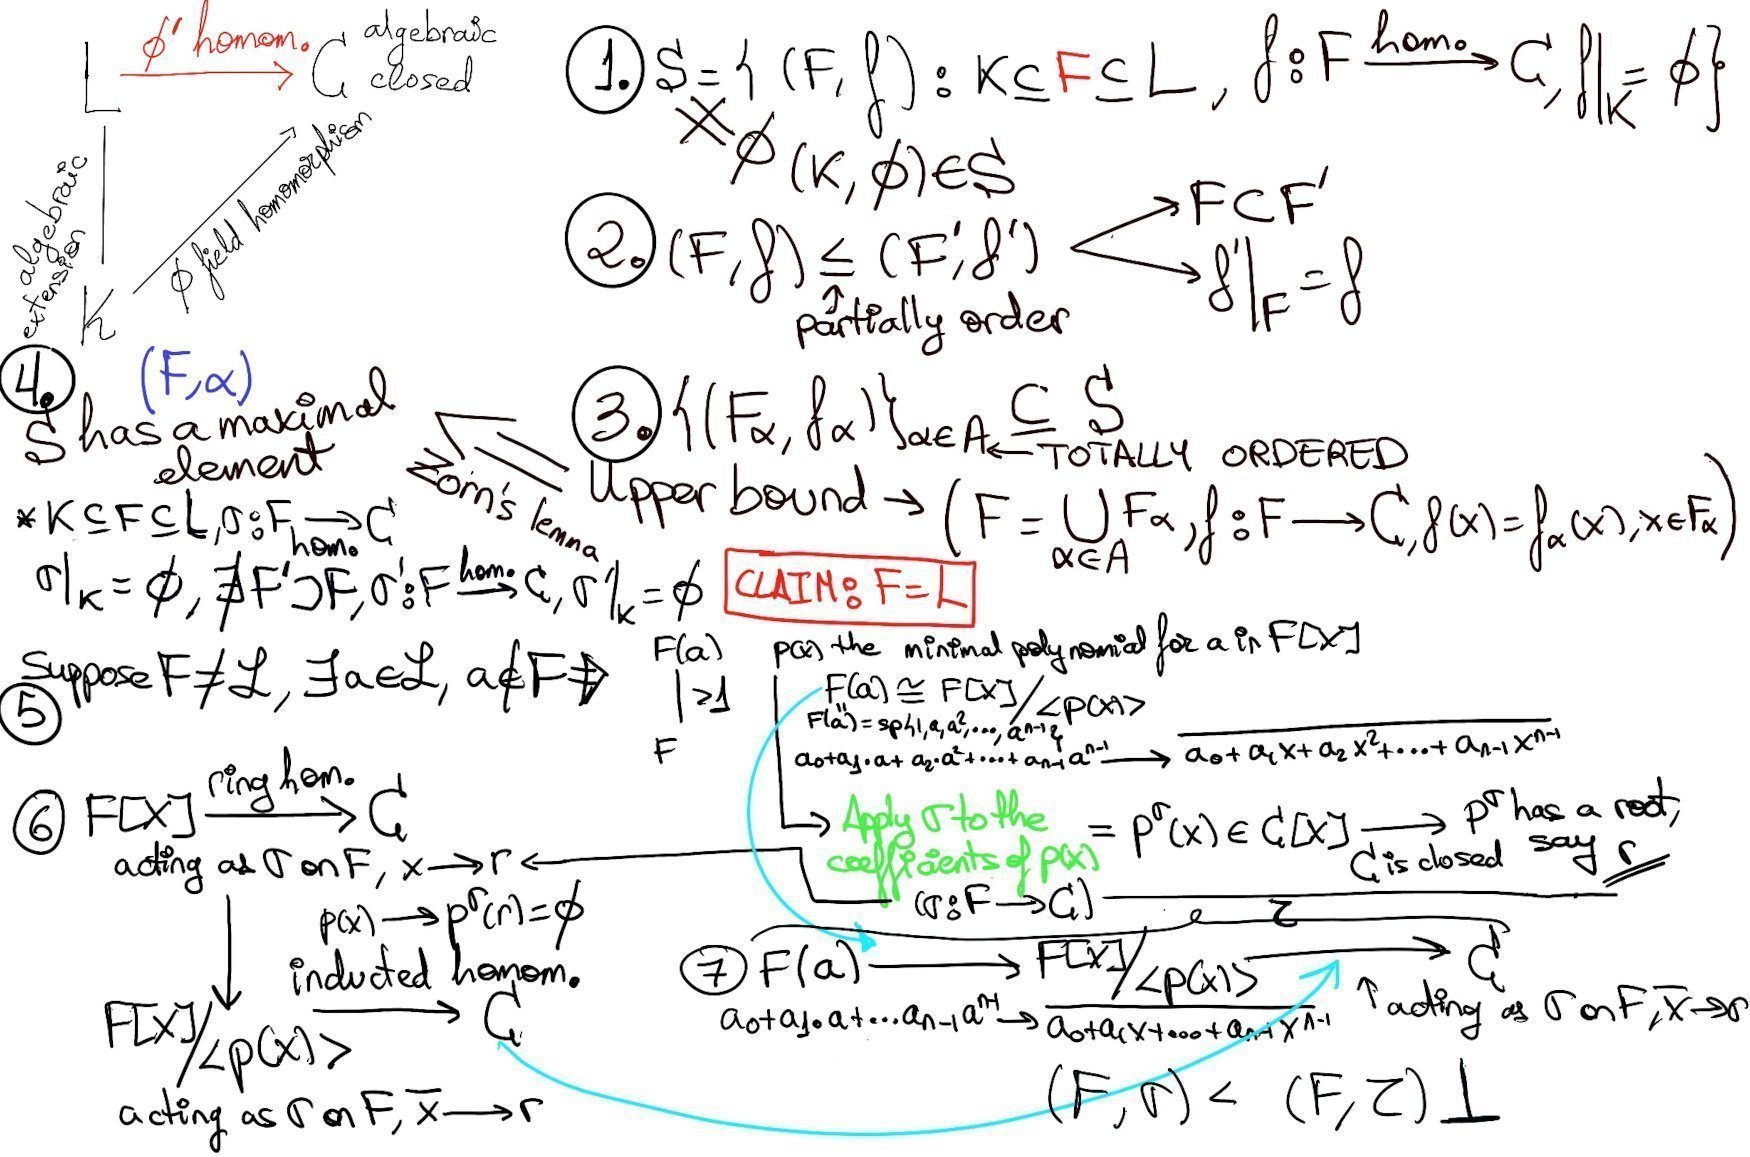 L φ' homom. C algebraic closed
algebraic extension
φ field homomorphism
K
1. S = { (F, f) : K ⊆ F ⊆ L, f : F hom. → C, f|K = φ}
φ (K, φ) ∈ S
2. (F, f) ≤ (F', f')
F ⊂ F'
f'|F = f
↑ partially order
3. {(Fα, fα)}α∈A ⊆ S
← TOTALLY ORDERED
Upper bound → (F = ∪ Fα, f : F → C, f(x) = fα(x), x ∈ Fα)
α∈A
Zorn's lemma
4. (F, α)
S has a maximal element
* K ⊆ F ⊆ L, σ : F → C
hom.
σ|K = φ, ∄F' ⊃ F, σ' : F hom. → C, σ'|K = φ
CLAIM : F = L
5 Suppose F ≠ L, ∃a ∈ L, a ∉ F ⇒
F(a)
| >1
F
p(x) the minimal polynomial for a in F[X]
F(a) ≅ F[X]/<p(x)>
F(a) = sp{1, a, a², ..., aⁿ⁻¹}
a₀+a₁·a+a₂·a²+...+aₙ₋₁aⁿ⁻¹ → a₀+a₁x+a₂x²+...+aₙ₋₁xⁿ⁻¹
Apply σ to the coefficients of p(x) = p^σ(x) ∈ C[X] → p^σ has a root, say r
C is closed
(σ : F → C)
6 F[X] ring hom. → C
acting as σ on F, x → r
p(x) → p^σ(r) = φ
inducted homom.
F[X]/<p(x)> → C
acting as σ on F, x̄ → r
τ
7 F(a) → F[X]/<p(x)> → C
a₀+a₁·a+...aₙ₋₁aⁿ⁻¹ → a₀+a₁x+...+aₙ₋₁xⁿ⁻¹
↑ acting as σ on F, x̄ → r
(F, σ) < (F, τ) ⊥